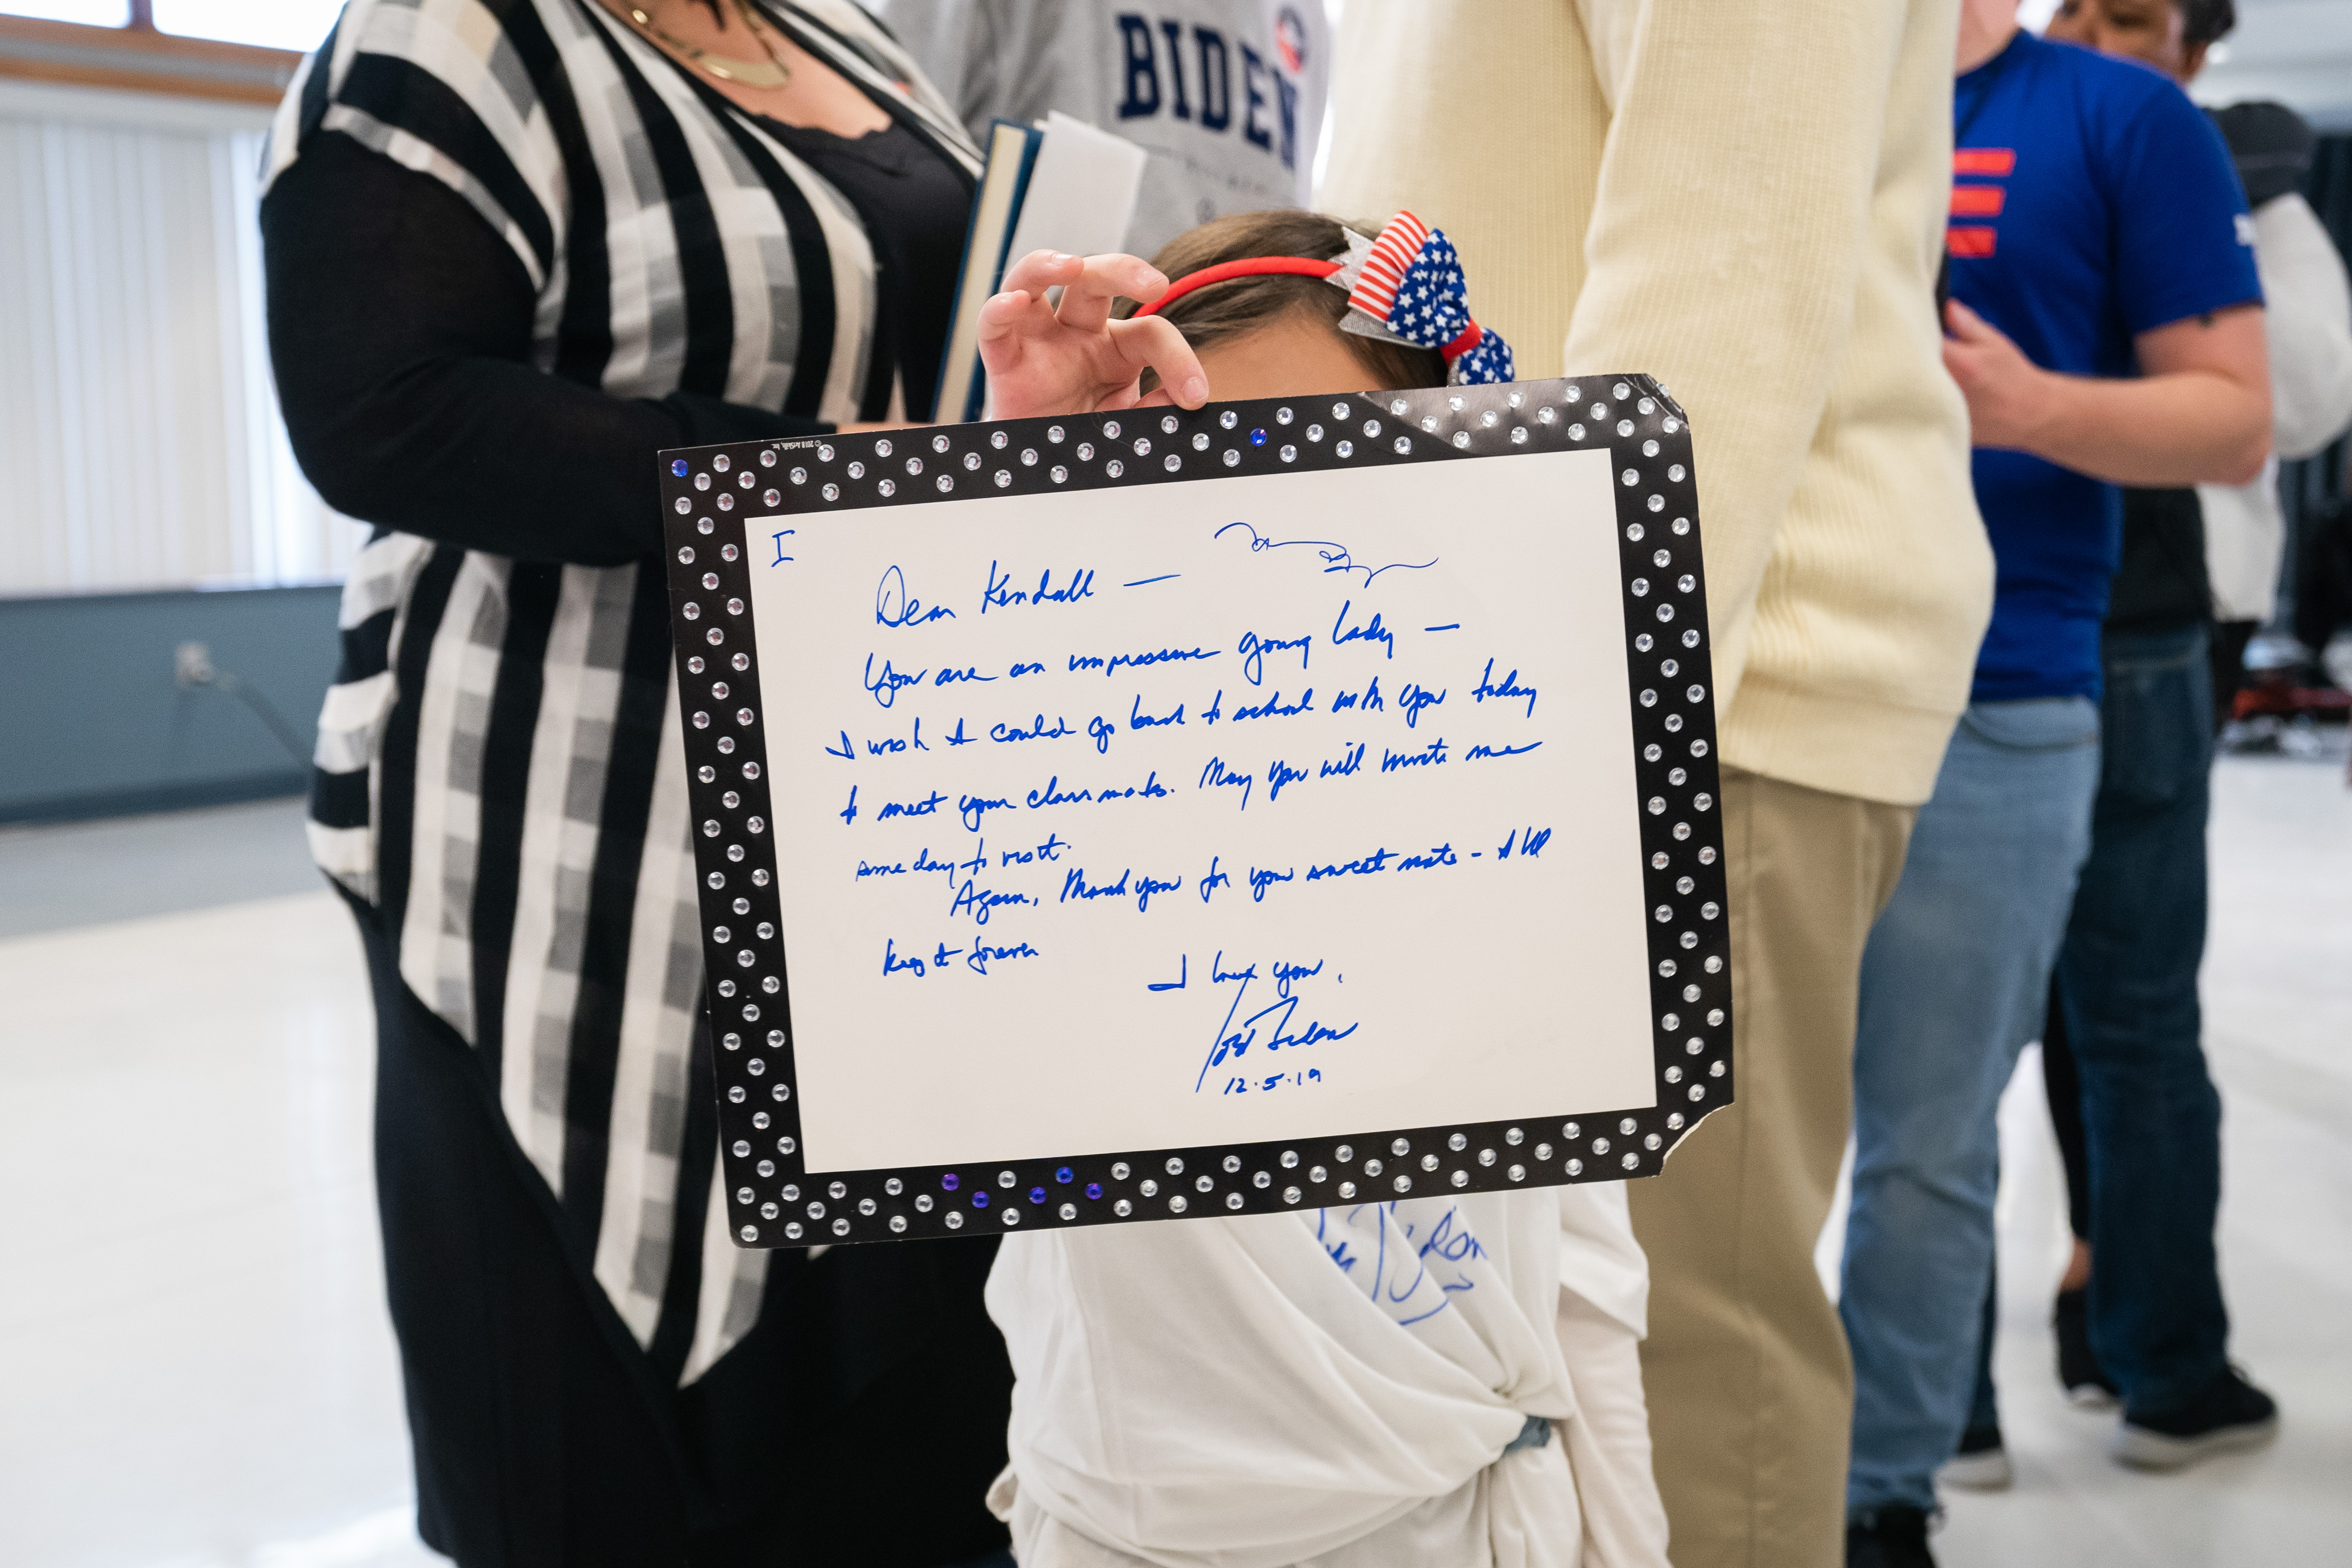 BIDEN
© 2018 ArtSkills, Inc.
I
Dear Kendall —
You are an impressive young lady —
I wish I could go back to school with you today
to meet your classmates. May you will invite me
some day to visit.
Again, Thank you for your sweet note - I'll
keep it forever
I love you,
Joe Biden
12.5.19